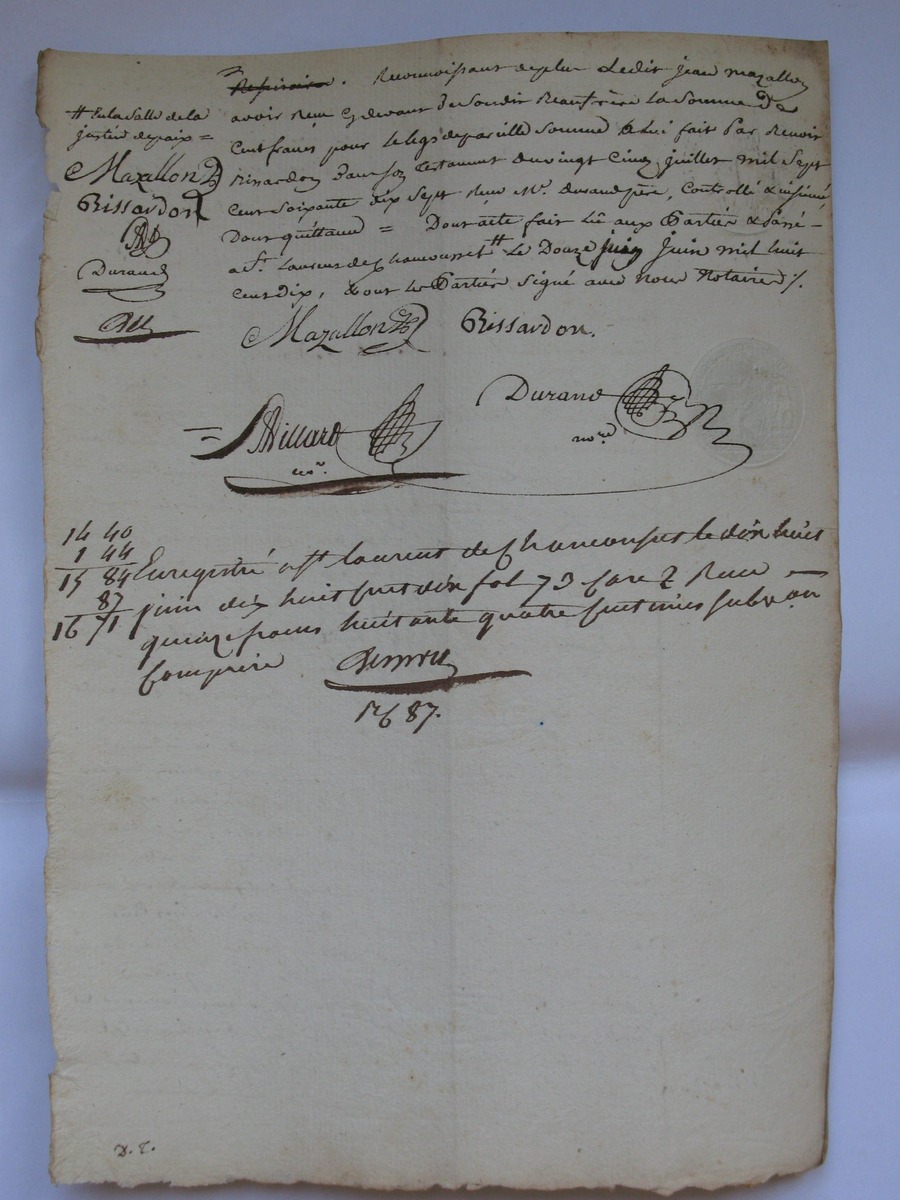 Reconnoissant deplus Ledit Jean Mazallon
avoir Reçu cy devant de Sondit Beaufrère La Somme de
Cent francs pour le legs de pareille Somme a Lui fait Par Benoit
Rissardon Dans son testament du vingt Cinq Juillet mil Sept
Cent Soixante dix Sept Reçu Me. durand père, Controllé & insinué
Dont quittance = Dont acte fait Lû aux Parties & Passé
a St. Laurent de Chamousset # Le Douze juin Juin mil huit
Cent dix, & ont Les Parties Signé avec Nous Notaires /.
# En la Salle de la
Justice de paix =
Mazallon
Rissardon
Durand
Mazallon
Rissardon.
Durand
nore
Villard
nore.
14 40
1 44
15 84
87
16 71
Enregistré a St laurent de Chamousset le dix huit
juin dix huit cent dix fol 73 Case 2 Reçu
quinze francs huitante quatre centimes subvon
Comprise
16 87.
D. T.